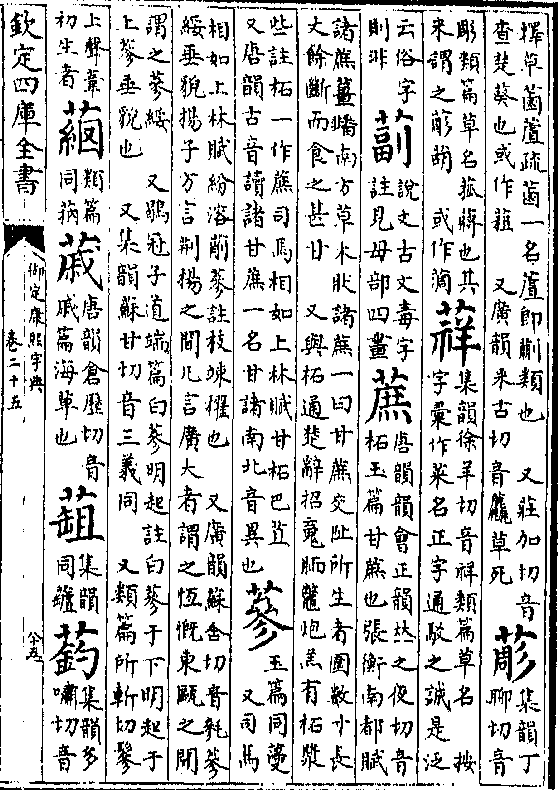 擇草菌蘆疏菌一名蘆即蒯類也 又莊加切音
查楚葵也或作葅 又廣韻釆古切音麤草死
集韻丁
聊切音
彫類篇草名菰蔣也其
米謂之 或作
集韻徐羊切音祥類篇草名 按
字彙作菜名正字通駁之誠是泛
云俗字
則非
說文古文毒字
註見毋部四畫
蔗
唐韻韻會正韻𠀤之夜切音
柘玉篇甘蔗也張衡南都賦
諸蔗薑南方草木狀諸蔗一曰甘蔗交趾所生者圍數寸長
丈餘斷而食之甚甘 又與柘通楚辭招䰟胹鼈炮羔有柘漿
些註柘一作蔗司馬相如上林賦甘柘巴苴
又唐韻古音讀諸甘蔗一名甘諸南北音異也
蔘
玉篇同薓
又司馬
相如上林賦紛溶萷蔘註枝竦擢也 又廣韻蘇含切音毿蔘
綏垂貌揚子方言荆揚之間凡言廣大者謂之恆慨東甌之間
謂之蔘綏 又鶡冠子道端篇曰蔘明起註曰蔘于下明起于
上蔘垂貌也 又集韻蘇甘切音三義同 又類篇所斬切鬖
上聲葦
初生者
類篇
同
唐韻倉歷切音
戚篇海草也
集韻
同
集韻多
嘯切音
欽定四庫全書
御定康熙字典
卷二十五